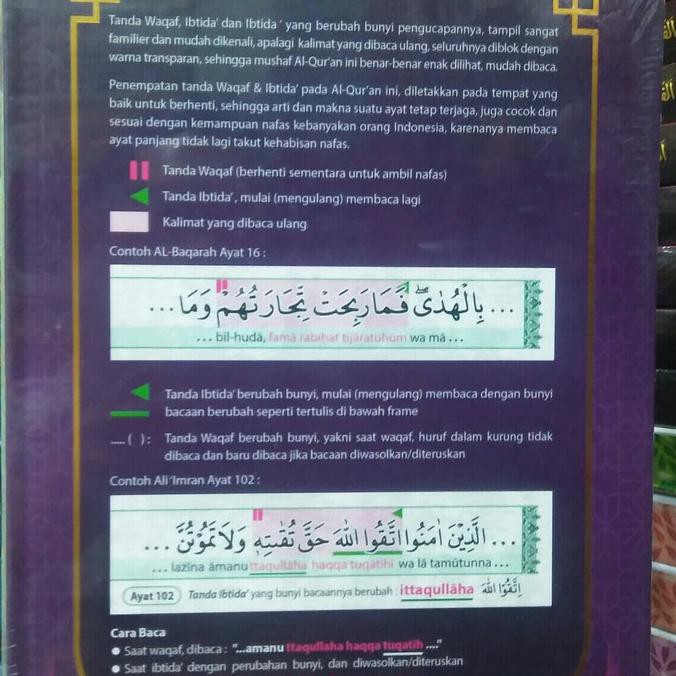 Tanda Waqaf, Ibtida' dan Ibtida ' yang berubah bunyi pengucapannya, tampil sangat
familier dan mudah dikenali, apalagi kalimat yang dibaca ulang, seluruhnya diblok dengan
warna transparan, sehingga mushaf Al-Qur'an ini benar-benar enak dilihat, mudah dibaca.
Penempatan tanda Waqaf & Ibtida' pada Al-Qur'an ini, diletakkan pada tempat yang
baik untuk berhenti, sehingga arti dan makna suatu ayat tetap terjaga, juga cocok dan
sesuai dengan kemampuan nafas kebanyakan orang Indonesia, karenanya membaca
ayat panjang tidak lagi takut kehabisan nafas.
Tanda Waqaf (berhenti sementara untuk ambil nafas)
Tanda Ibtida', mulai (mengulang) membaca lagi
Kalimat yang dibaca ulang
Contoh AL-Baqarah Ayat 16 :
... بِالْهُدٰىۖ فَمَا رَبِحَتْ تِّجَارَتُهُمْ وَمَا ...
... bil-hudā, famā rabiḥat tijāratuhum wa mā ...
Tanda Ibtida' berubah bunyi, mulai (mengulang) membaca dengan bunyi
bacaan berubah seperti tertulis di bawah frame
__ ( ) : Tanda Waqaf berubah bunyi, yakni saat waqaf, huruf dalam kurung tidak
dibaca dan baru dibaca jika bacaan diwasolkan/diteruskan
Contoh Ali 'Imran Ayat 102 :
... الَّذِيْنَ اٰمَنُوا اتَّقُوا اللّٰهَ حَقَّ تُقٰىتِهٖ وَلَا تَمُوْتُنَّ ...
... lażīna āmanu ttaqullāha haqqa tuqātihi wa lā tamūtunna ...
Ayat 102 Tanda ibtida' yang bunyi bacaannya berubah : ittaqullāha اِتَّقُوا اللّٰهَ
Cara Baca
● Saat waqaf, dibaca : "...amanu ttaqullaha haqqa tuqatih ...."
● Saat ibtida' dengan perubahan bunyi, dan diwasolkan/diteruskan